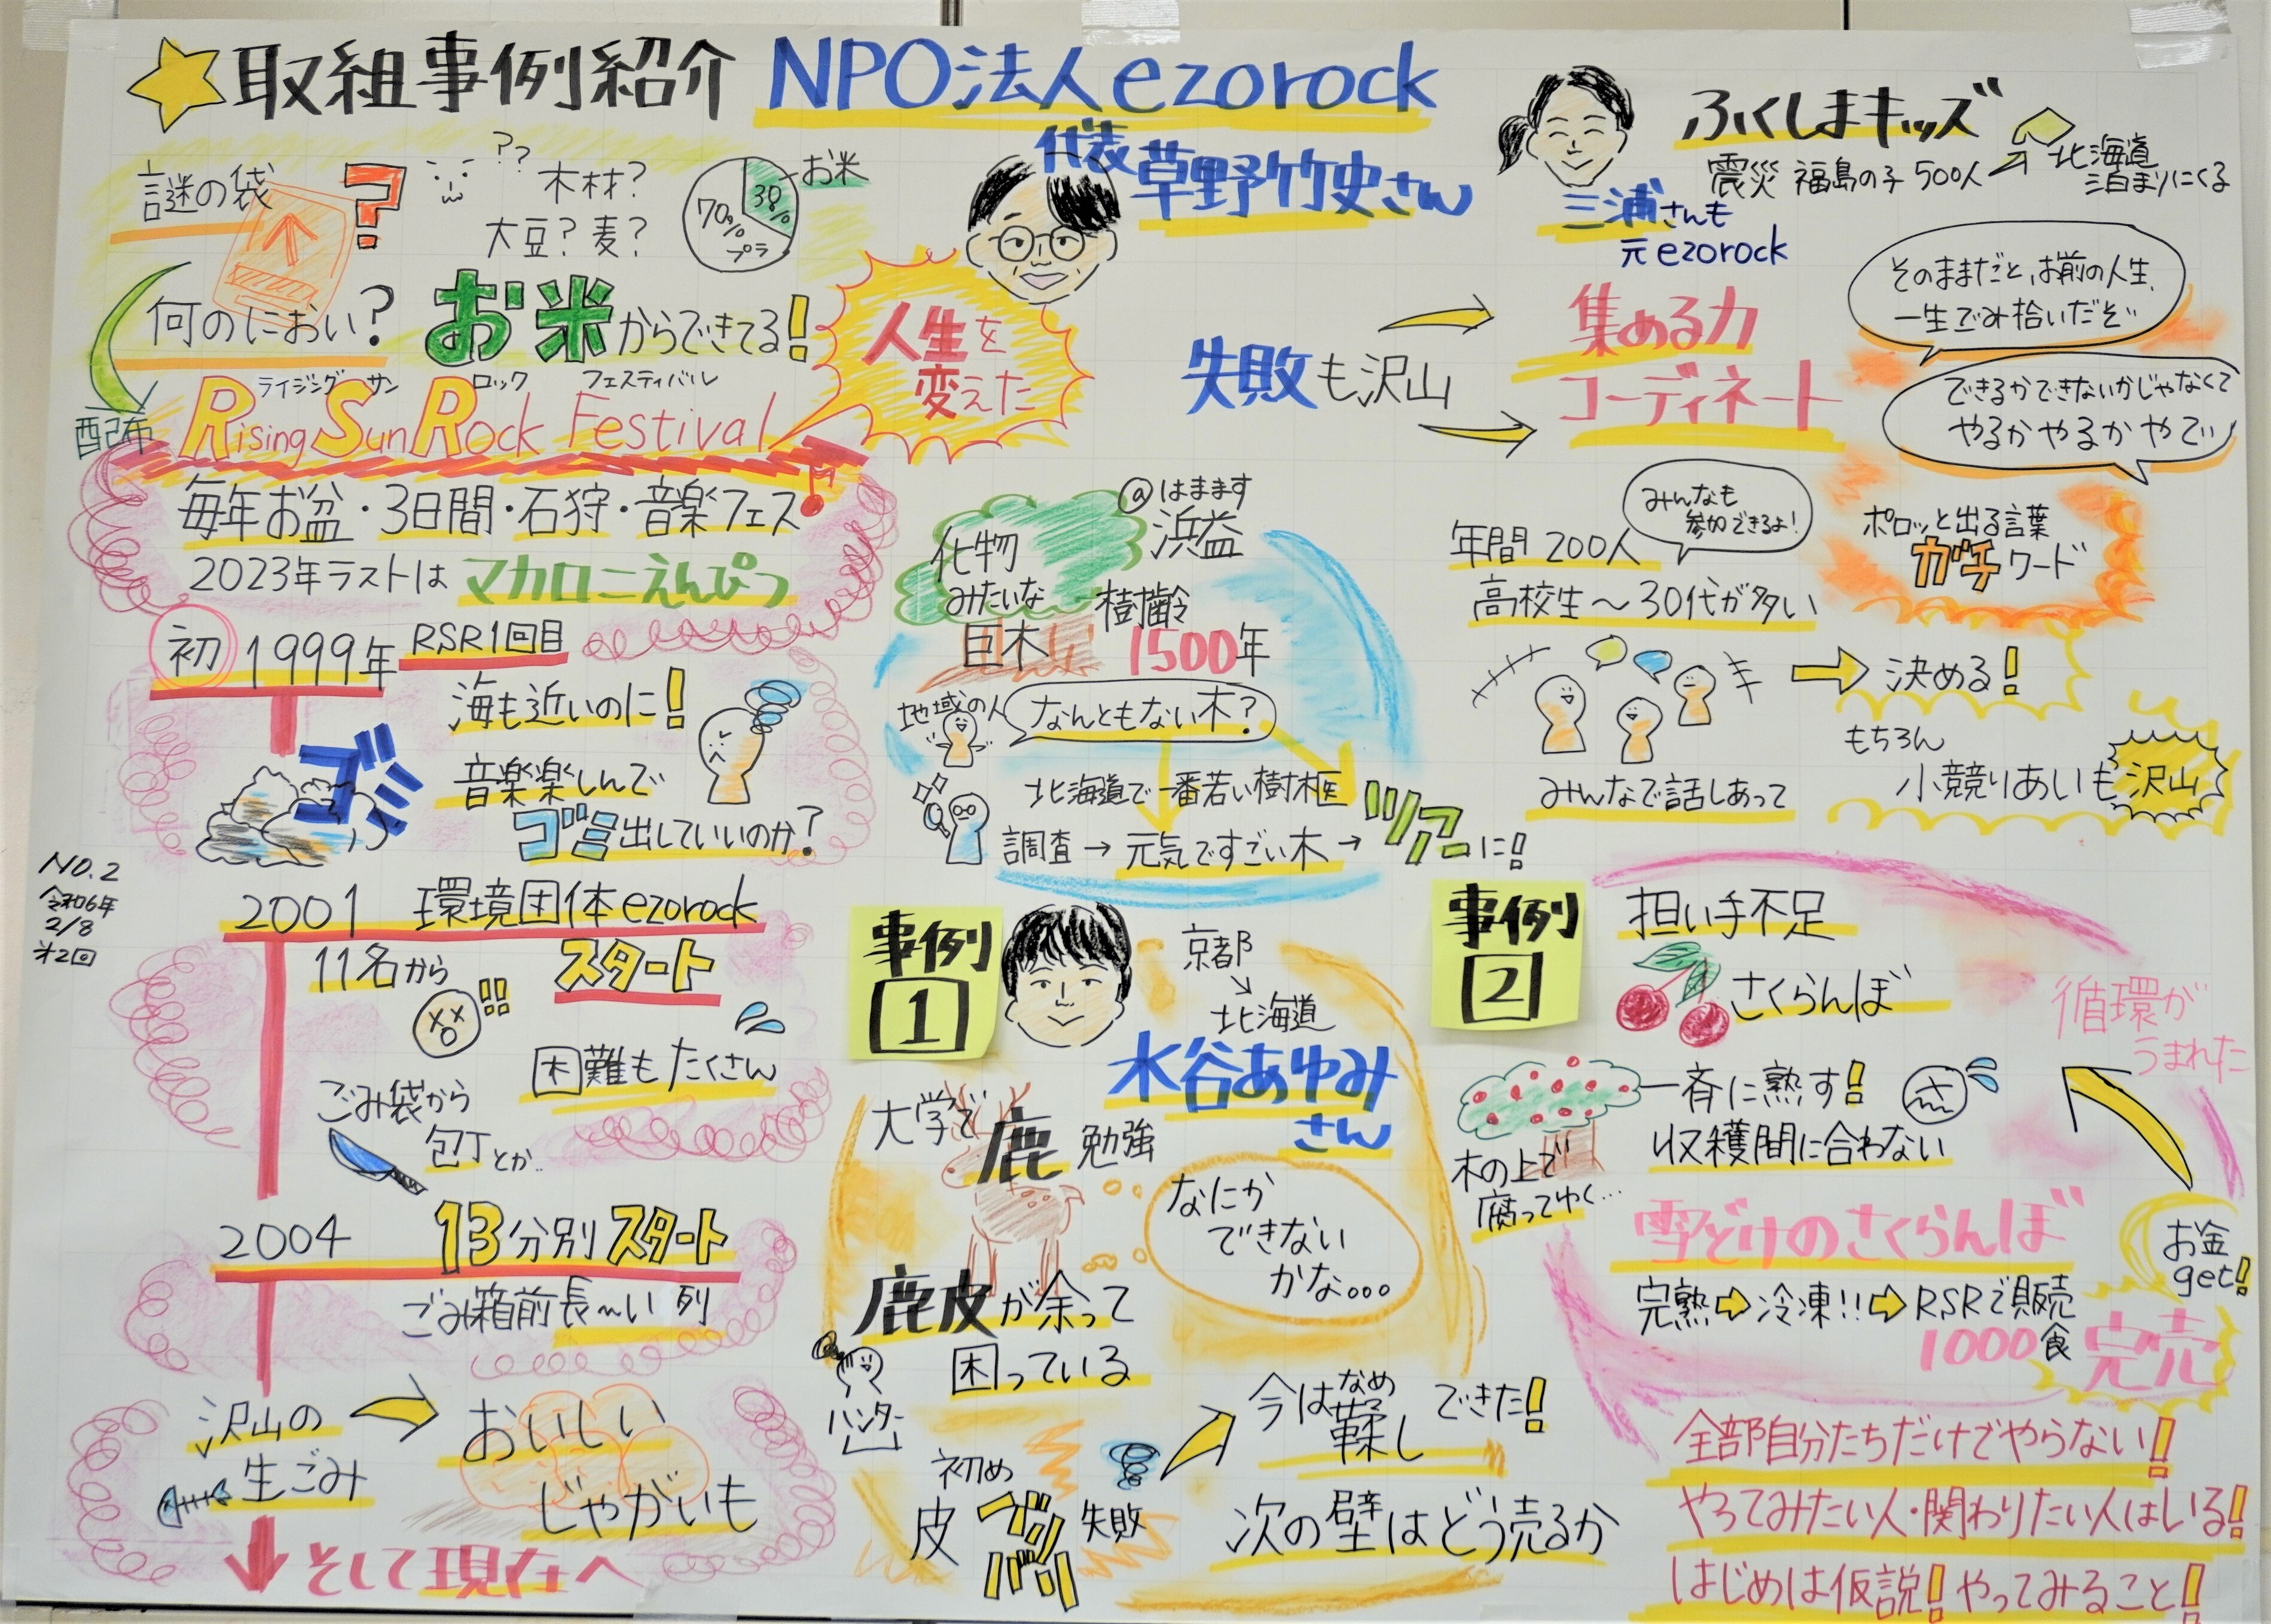 取組事例紹介 NPO法人ezorock
代表
草野竹史さん
謎の袋
?
??
木材?
大豆?麦?
お米
30%
70%
プラ
何のにおい?
お米からできてる!
配布
ライジング サン ロック フェスティバル
Rising Sun Rock Festival
人生を
変えた
毎年お盆・3日間・石狩・音楽フェス
2023年ラストは マカロニえんぴつ
初 1999年 RSR1回目
海も近いのに!
ゴミ
音楽楽しんで
ゴミ出していいのか?
NO.2
令和6年
2/8
2001 環境団体ezorock
11名から スタート
!!
困難もたくさん
ごみ袋から
包丁とか..
2004 13分別スタート
ごみ箱前長〜い列
沢山の
生ごみ
おいしい
じゃがいも
そして現在へ
三浦さんも
元ezorock
ふくしまキッズ
震災 福島の子 500人
北海道
泊まりにくる
失敗も沢山
集める力
コーディネート
そのままだと、お前の人生、
一生ごみ拾いだぞ
できるかできないかじゃなくて
やるかやるかやで
ポロッと出る言葉
ガチワード
年間 200人
みんなも
参加できるよ!
高校生〜30代が多い
みんなで話しあって
決める!
もちろん
小競りあいも沢山
@はまます
浜益
化物
みたいな
巨木
樹齢
1500年
地域の人
なんともない木?
北海道で一番若い樹木医
調査→元気ですごい木→ツアーに!
事例
1
京都
北海道
水谷あゆみ
さん
大学で
鹿 勉強
なにか
できない
かな...
鹿皮が余って
困っている
ハンター
初め
皮 失敗
今は鞣し できた!
なめ
次の壁はどう売るか
事例
2
担い手不足
さくらんぼ
一斉に熟す!
収穫間に合わない
木の上で
腐ってゆく...
循環が
うまれた
雪どけのさくらんぼ
完熟⇨冷凍!!⇨RSRで販売
1000食 完売
お金
get!
全部自分たちだけでやらない!
やってみたい人・関わりたい人はいる!
はじめは仮説!やってみること!